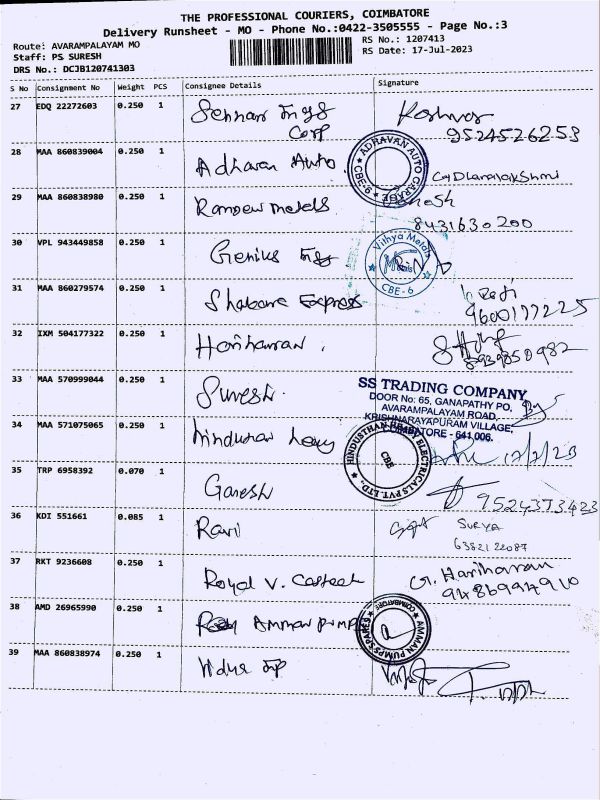 THE PROFESSIONAL COURIERS, COIMBATORE
Delivery Runsheet - MO - Phone No.:0422-3505555 - Page No.:3
Route: AVARAMPALAYAM MO
Staff: PS SURESH
DRS No.: DCJB120741303
RS No.: 1207413
RS Date: 17-Jul-2023
S No Consignment No Weight PCS Consignee Details Signature
27 EDQ 22272603 0.250 1
Corp
9524526253
28 MAA 860839004 0.250 1 Adharan Auto
ADHRAVAN AUTO GARAGE
CBE-6
29 MAA 860838980 0.250 1 Metals
8431630200
30 VPL 943449858 0.250 1 Genius
Vithya Metals
CBE - 6
31 MAA 860279574 0.250 1 Express
9600177225
32 IXM 504177322 0.250 1 Hariharan
8939850982
33 MAA 570999044 0.250 1 Suresh
SS TRADING COMPANY
DOOR No: 65, GANAPATHY PO,
AVARAMPALAYAM ROAD,
KRISHNARAYAPURAM VILLAGE,
COIMBATORE - 641 006.
34 MAA 571075065 0.250 1
HINDUSTHAN HEAVY ELECTRICALS PVT. LTD.,
CBE
35 TRP 6958392 0.070 1 Ganesh
9524373423
36 KDI 551661 0.085 1 Ravi
SURYA
6382122087
37 RKT 9236608 0.250 1 Royal V.
G. Hariharan
9486994910
38 AMD 26965990 0.250 1 Amman Pump
AMMAN PUMPS SPARES
COIMBATORE
39 MAA 860838974 0.250 1